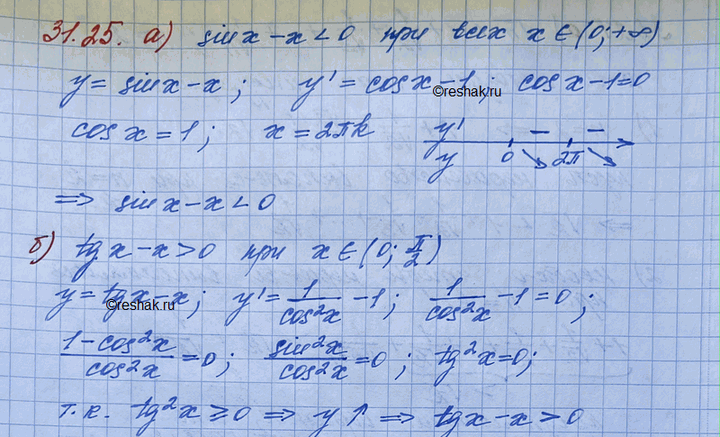 31.25. а) sin x - x < 0 при всех x ∈ (0; +∞)
y = sin x - x ; y' = cos x - 1 ; cos x - 1 = 0
©reshak.ru
cos x = 1 ; x = 2πk y' − −
y 0 ↘ 2π ↘
⇒ sin x - x < 0
б) tg x - x > 0 при x ∈ (0; π/2)
y = tg x - x ; y' = 1/cos²x - 1 ; 1/cos²x - 1 = 0 ;
©reshak.ru
(1 - cos²x)/cos²x = 0 ; sin²x/cos²x = 0 ; tg²x = 0;
т.к. tg²x ⩾ 0 ⇒ y ↑ ⇒ tg x - x > 0